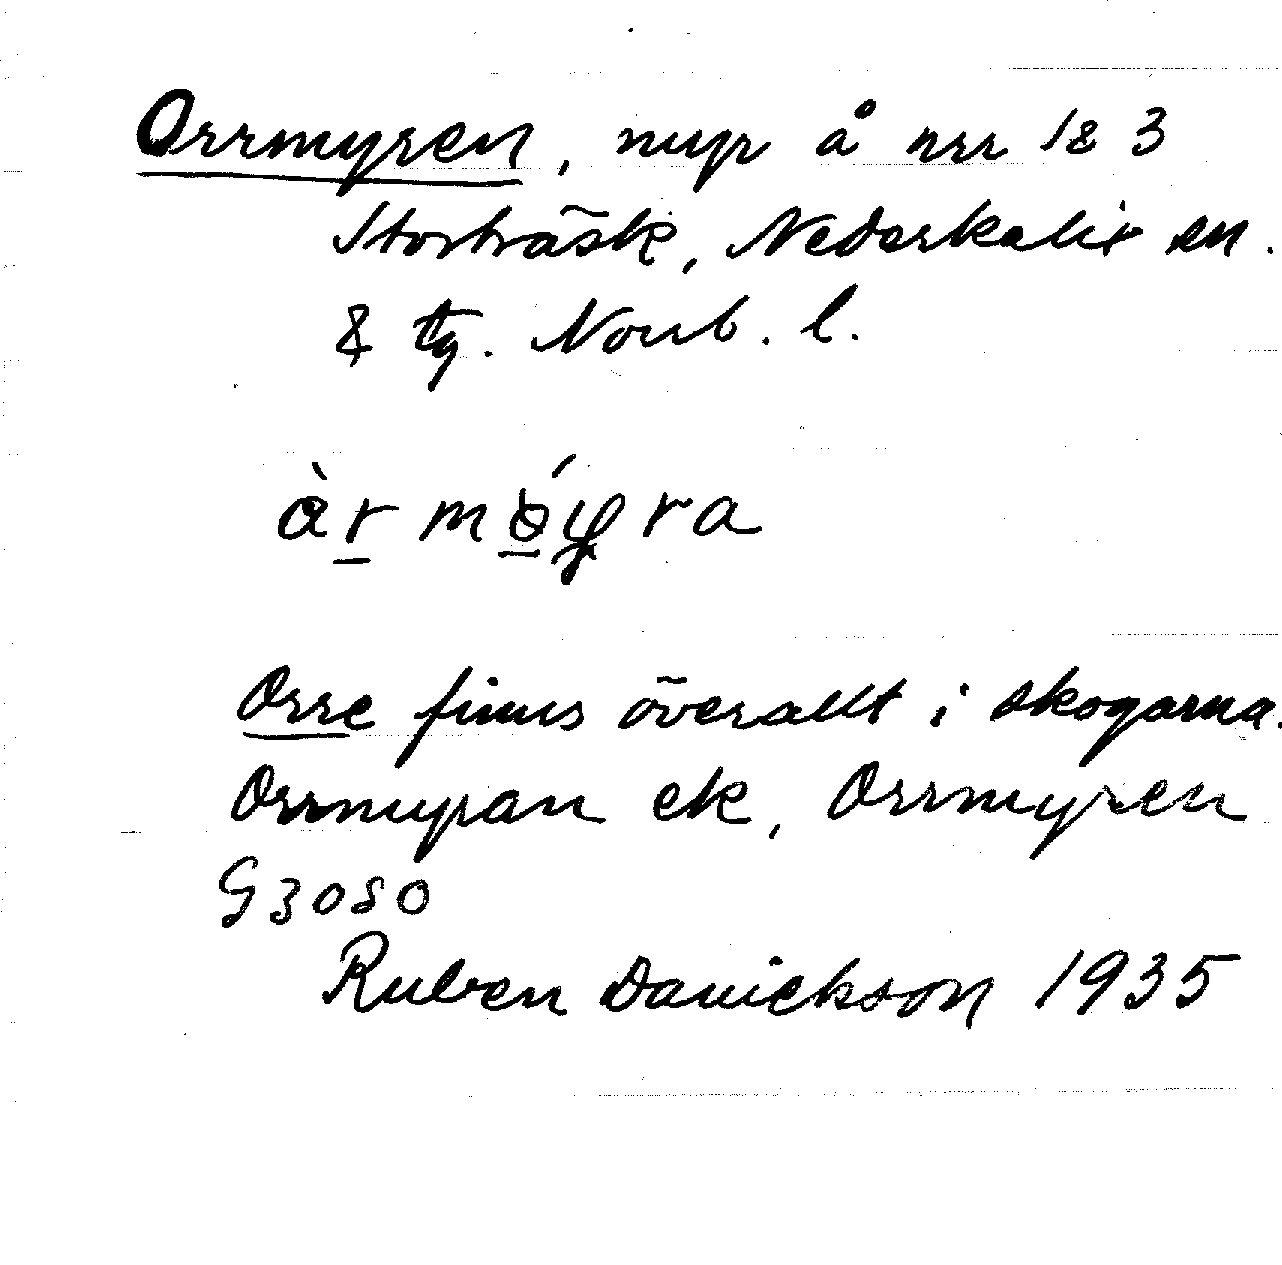 Orrmyren, myr å nrr 1 & 3
Storträsk, Nederkalix sn.
& tg. Norrb. l.
àr mǿyra
Orre finns överallt i skogarna.
Orrmyran ek, Orrmyren
G3080
Ruben Danickson 1935